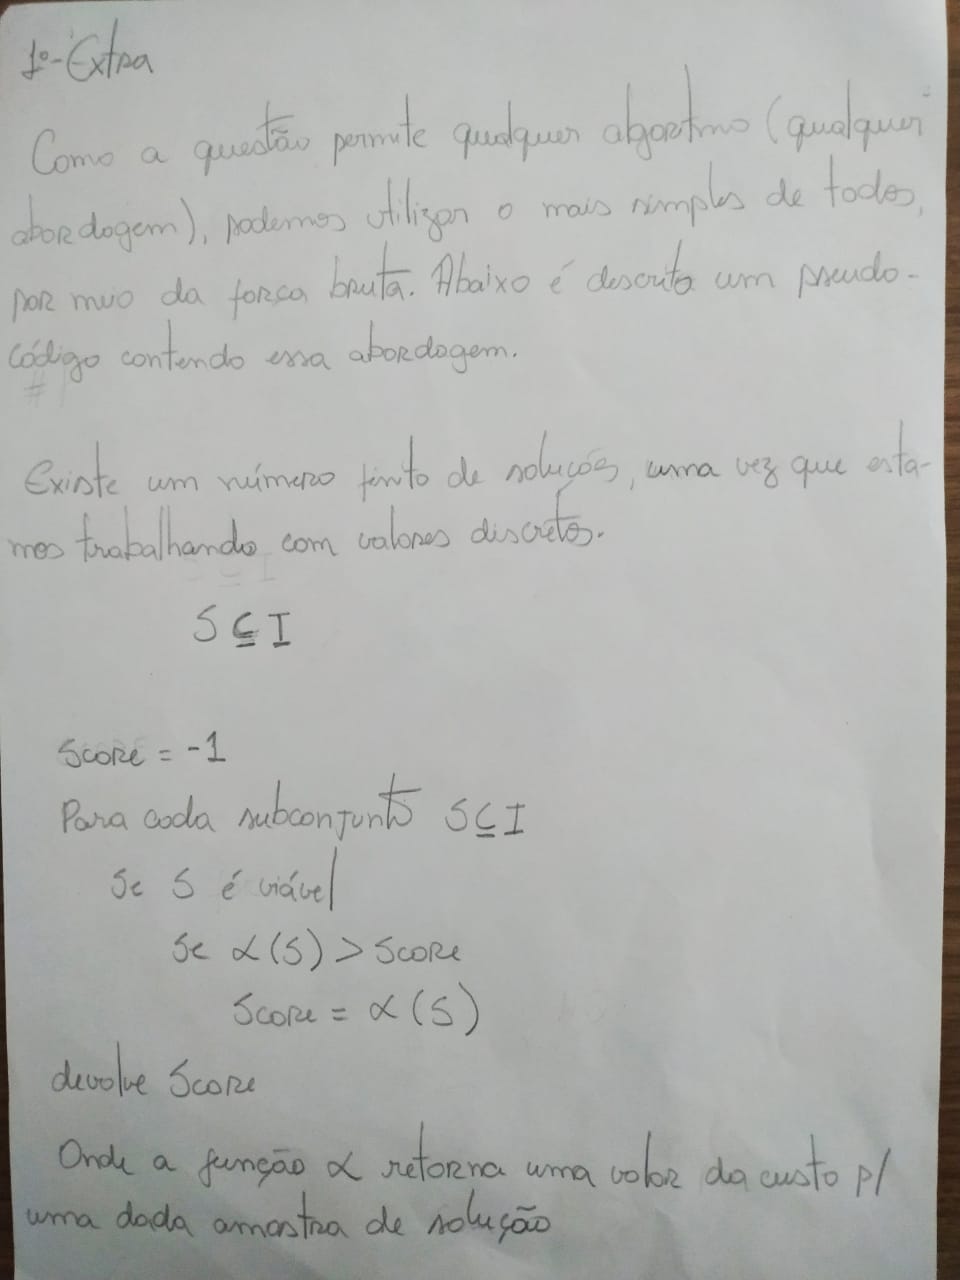 1º-Extra
Como a questão permite qualquer algoritmo (qualquer
abordagem), podemos utilizar o mais simples de todos,
por meio da força bruta. Abaixo é descrito um pseudo-
código contendo essa abordagem.
Existe um número finito de soluções, uma vez que esta-
mos trabalhando com valores discretos.
S ⊆ I
Score = -1
Para cada subconjunto S ⊆ I
Se S é viável
Se α(S) > Score
Score = α(S)
devolve Score
Onde a função α retorna uma valor da custo p/
uma dada amostra de solução